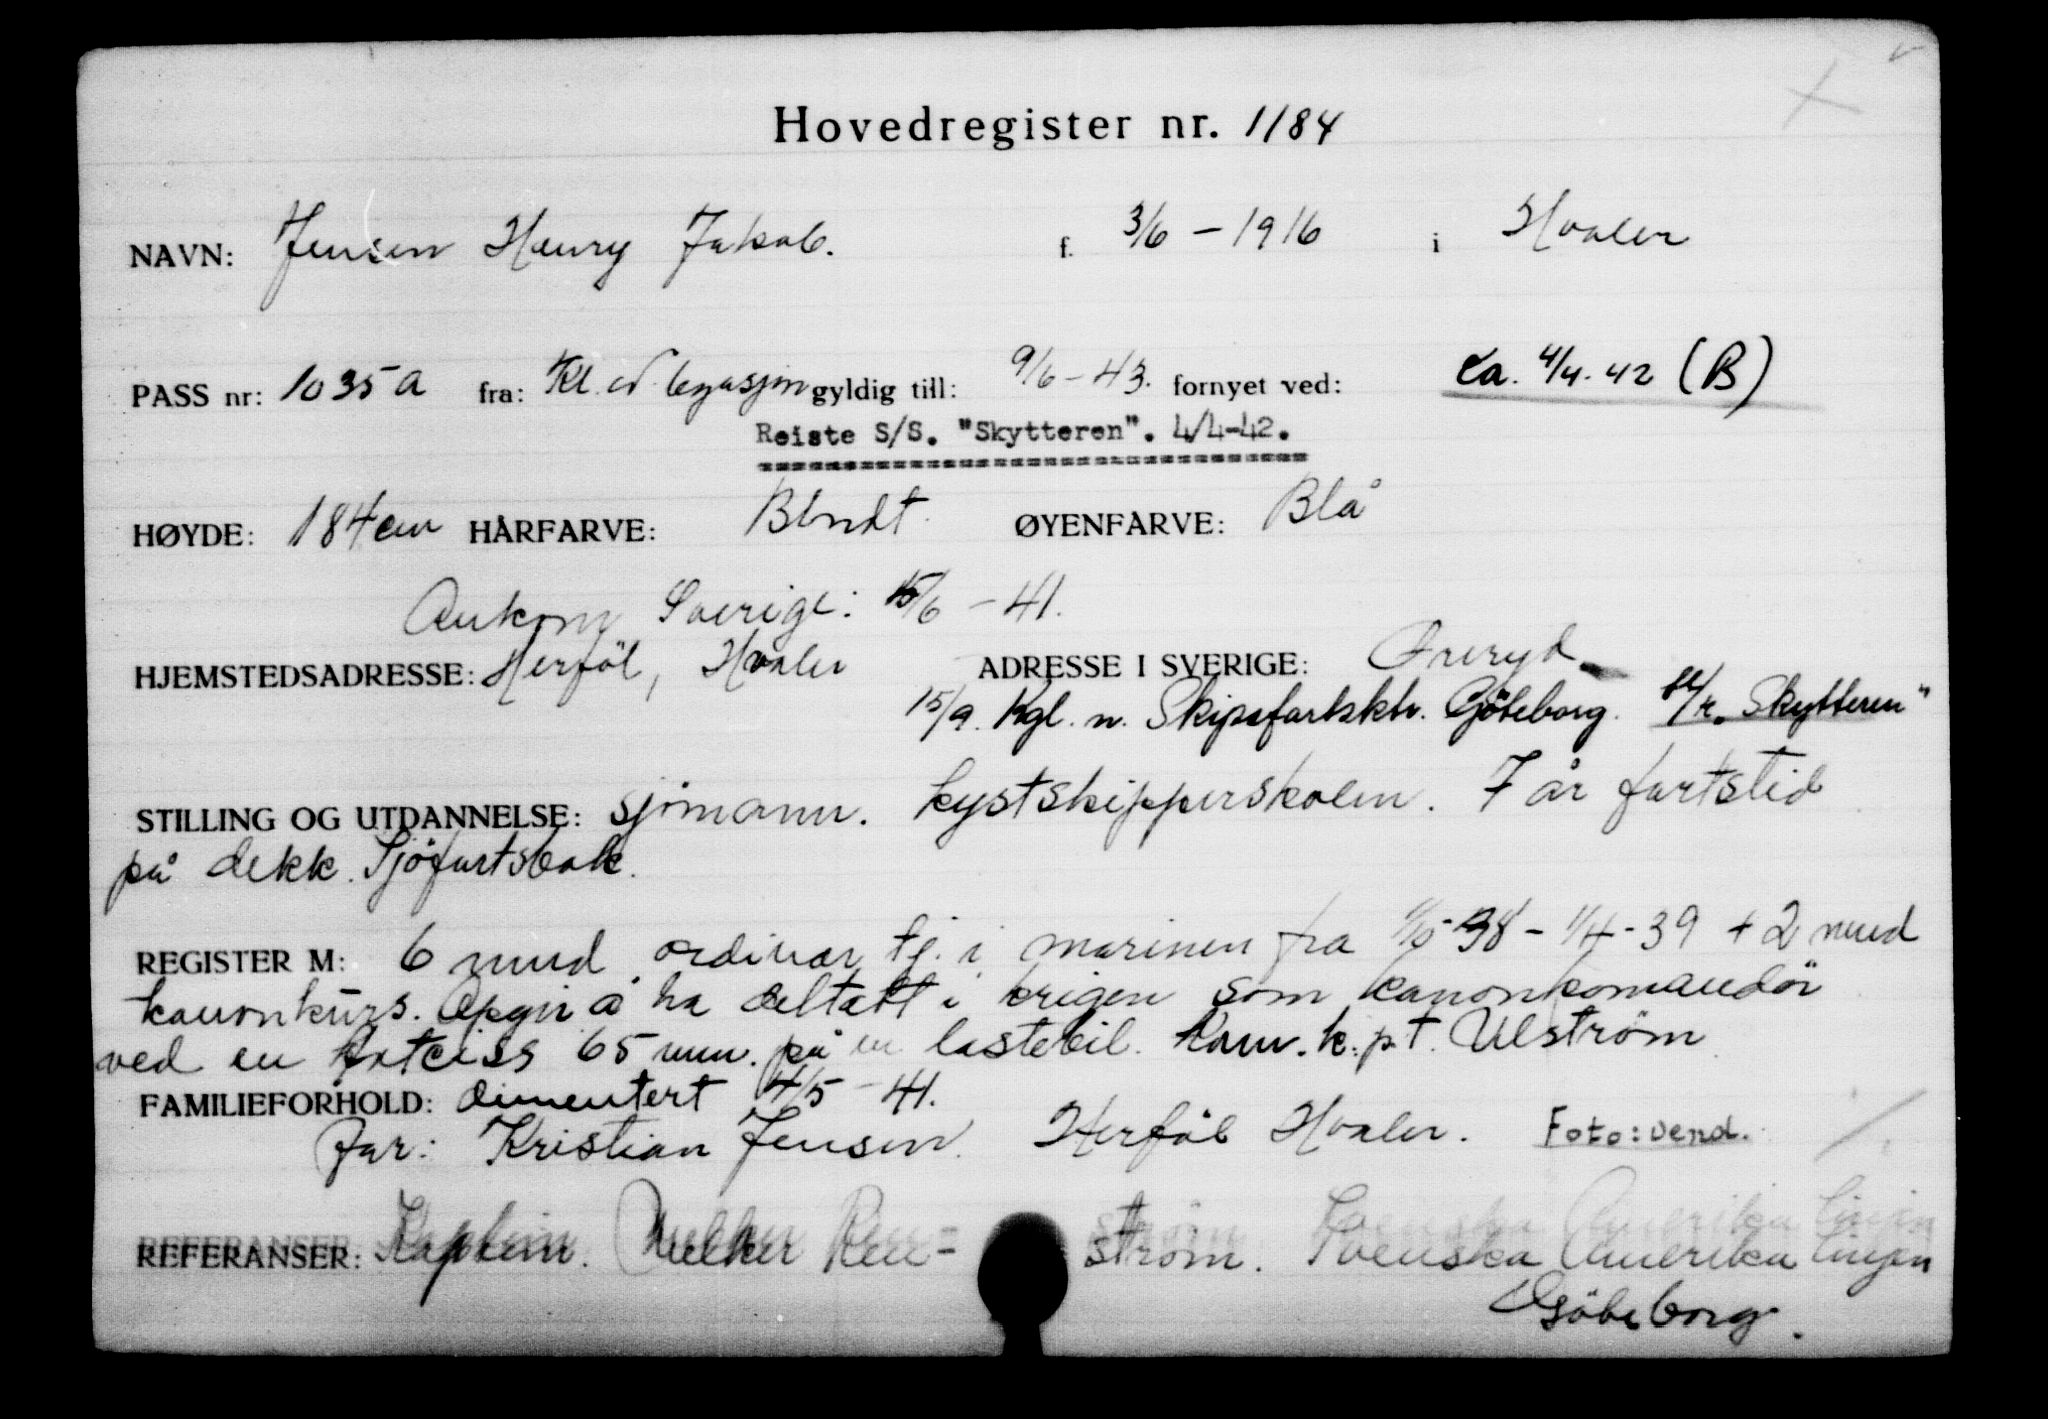 Hovedregister nr. 1184
NAVN: Jensen Henry Jakob. f. 3/6 - 1916 i Hvaler
PASS nr: 1035 a fra: Kl. N. legasjon gyldig till: 9/6 - 43. fornyet ved: ca. 4/4. 42 (B)
Reiste S/S. "Skytteren". 4/4-42.
HØYDE: 184 cm HÅRFARVE: Blndt. ØYENFARVE: Blå
Ankom Sverige: 15/6 - 41.
HJEMSTEDSADRESSE: Herföl, Hvaler ADRESSE I SVERIGE: Öreryd
15/9. Kgl. n. Skipsfartsktr. Göteborg. "Skytteren"
STILLING OG UTDANNELSE: sjömann. kystskipperskolen. 7 år fartstid
på dekk. Sjöfartsbok.
REGISTER M: 6 mnd ordinær tj. i marinen fra 1/10-38 - 1/4-39 + 2 mnd
kanonkurs. Opgir å ha deltatt i krigen som kanonkomandör
ved en 65 mm. på en lastebil. k.p.t. Ulström
FAMILIEFORHOLD: dimentert 4/5 - 41.
Far: Kristian Jensen. Herföl Hvaler. Foto: vend.
REFERANSER: Kaptein. Ren-ström. Svenska Amerika linjen
Göteborg.